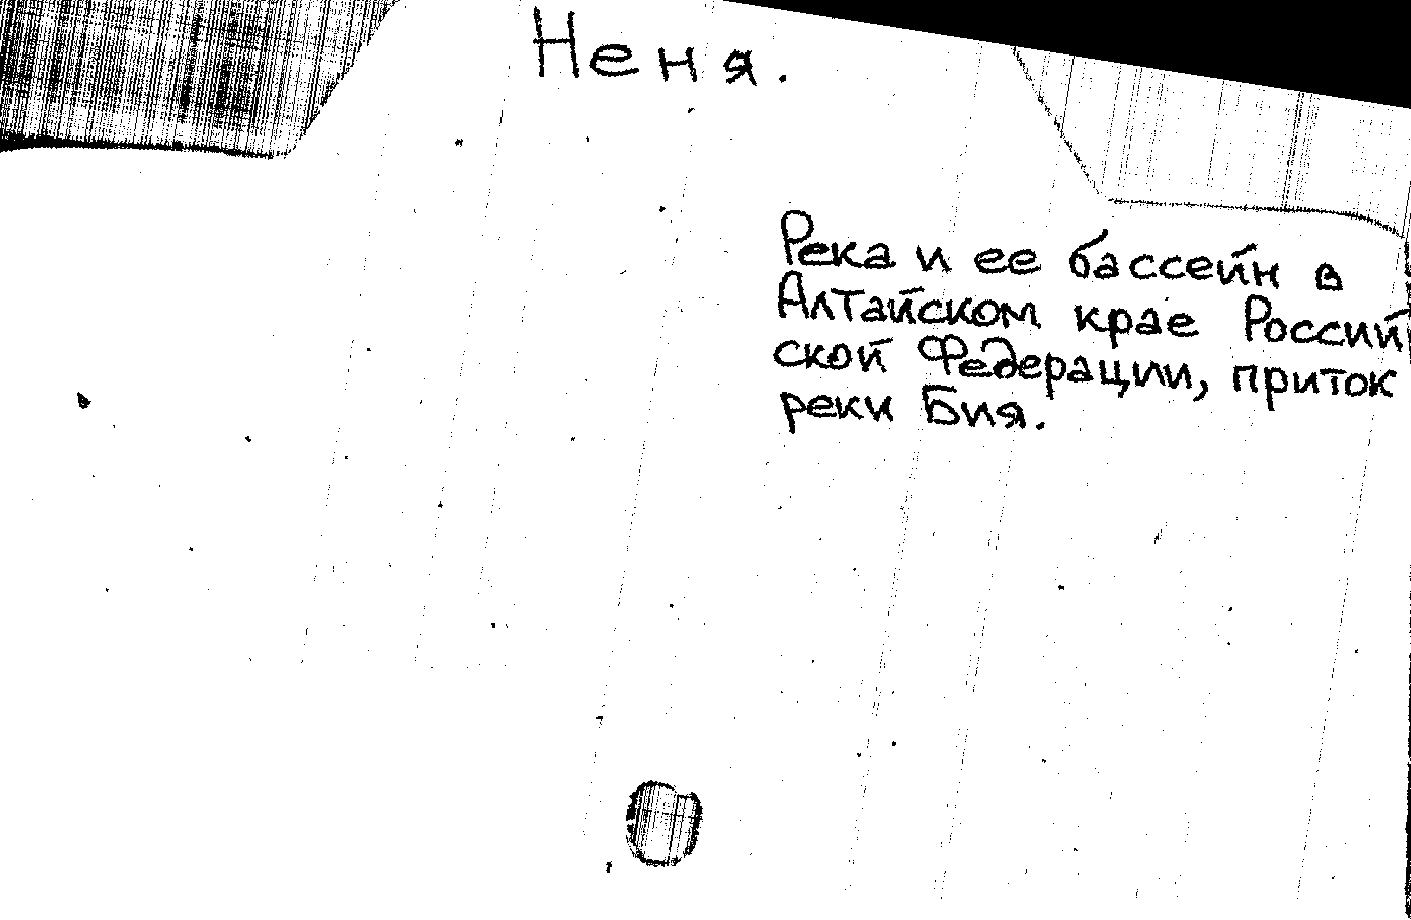 Неня.
Река и ее бассейн в
Алтайском крае Россий
ской Федерации, приток
реки Бия.